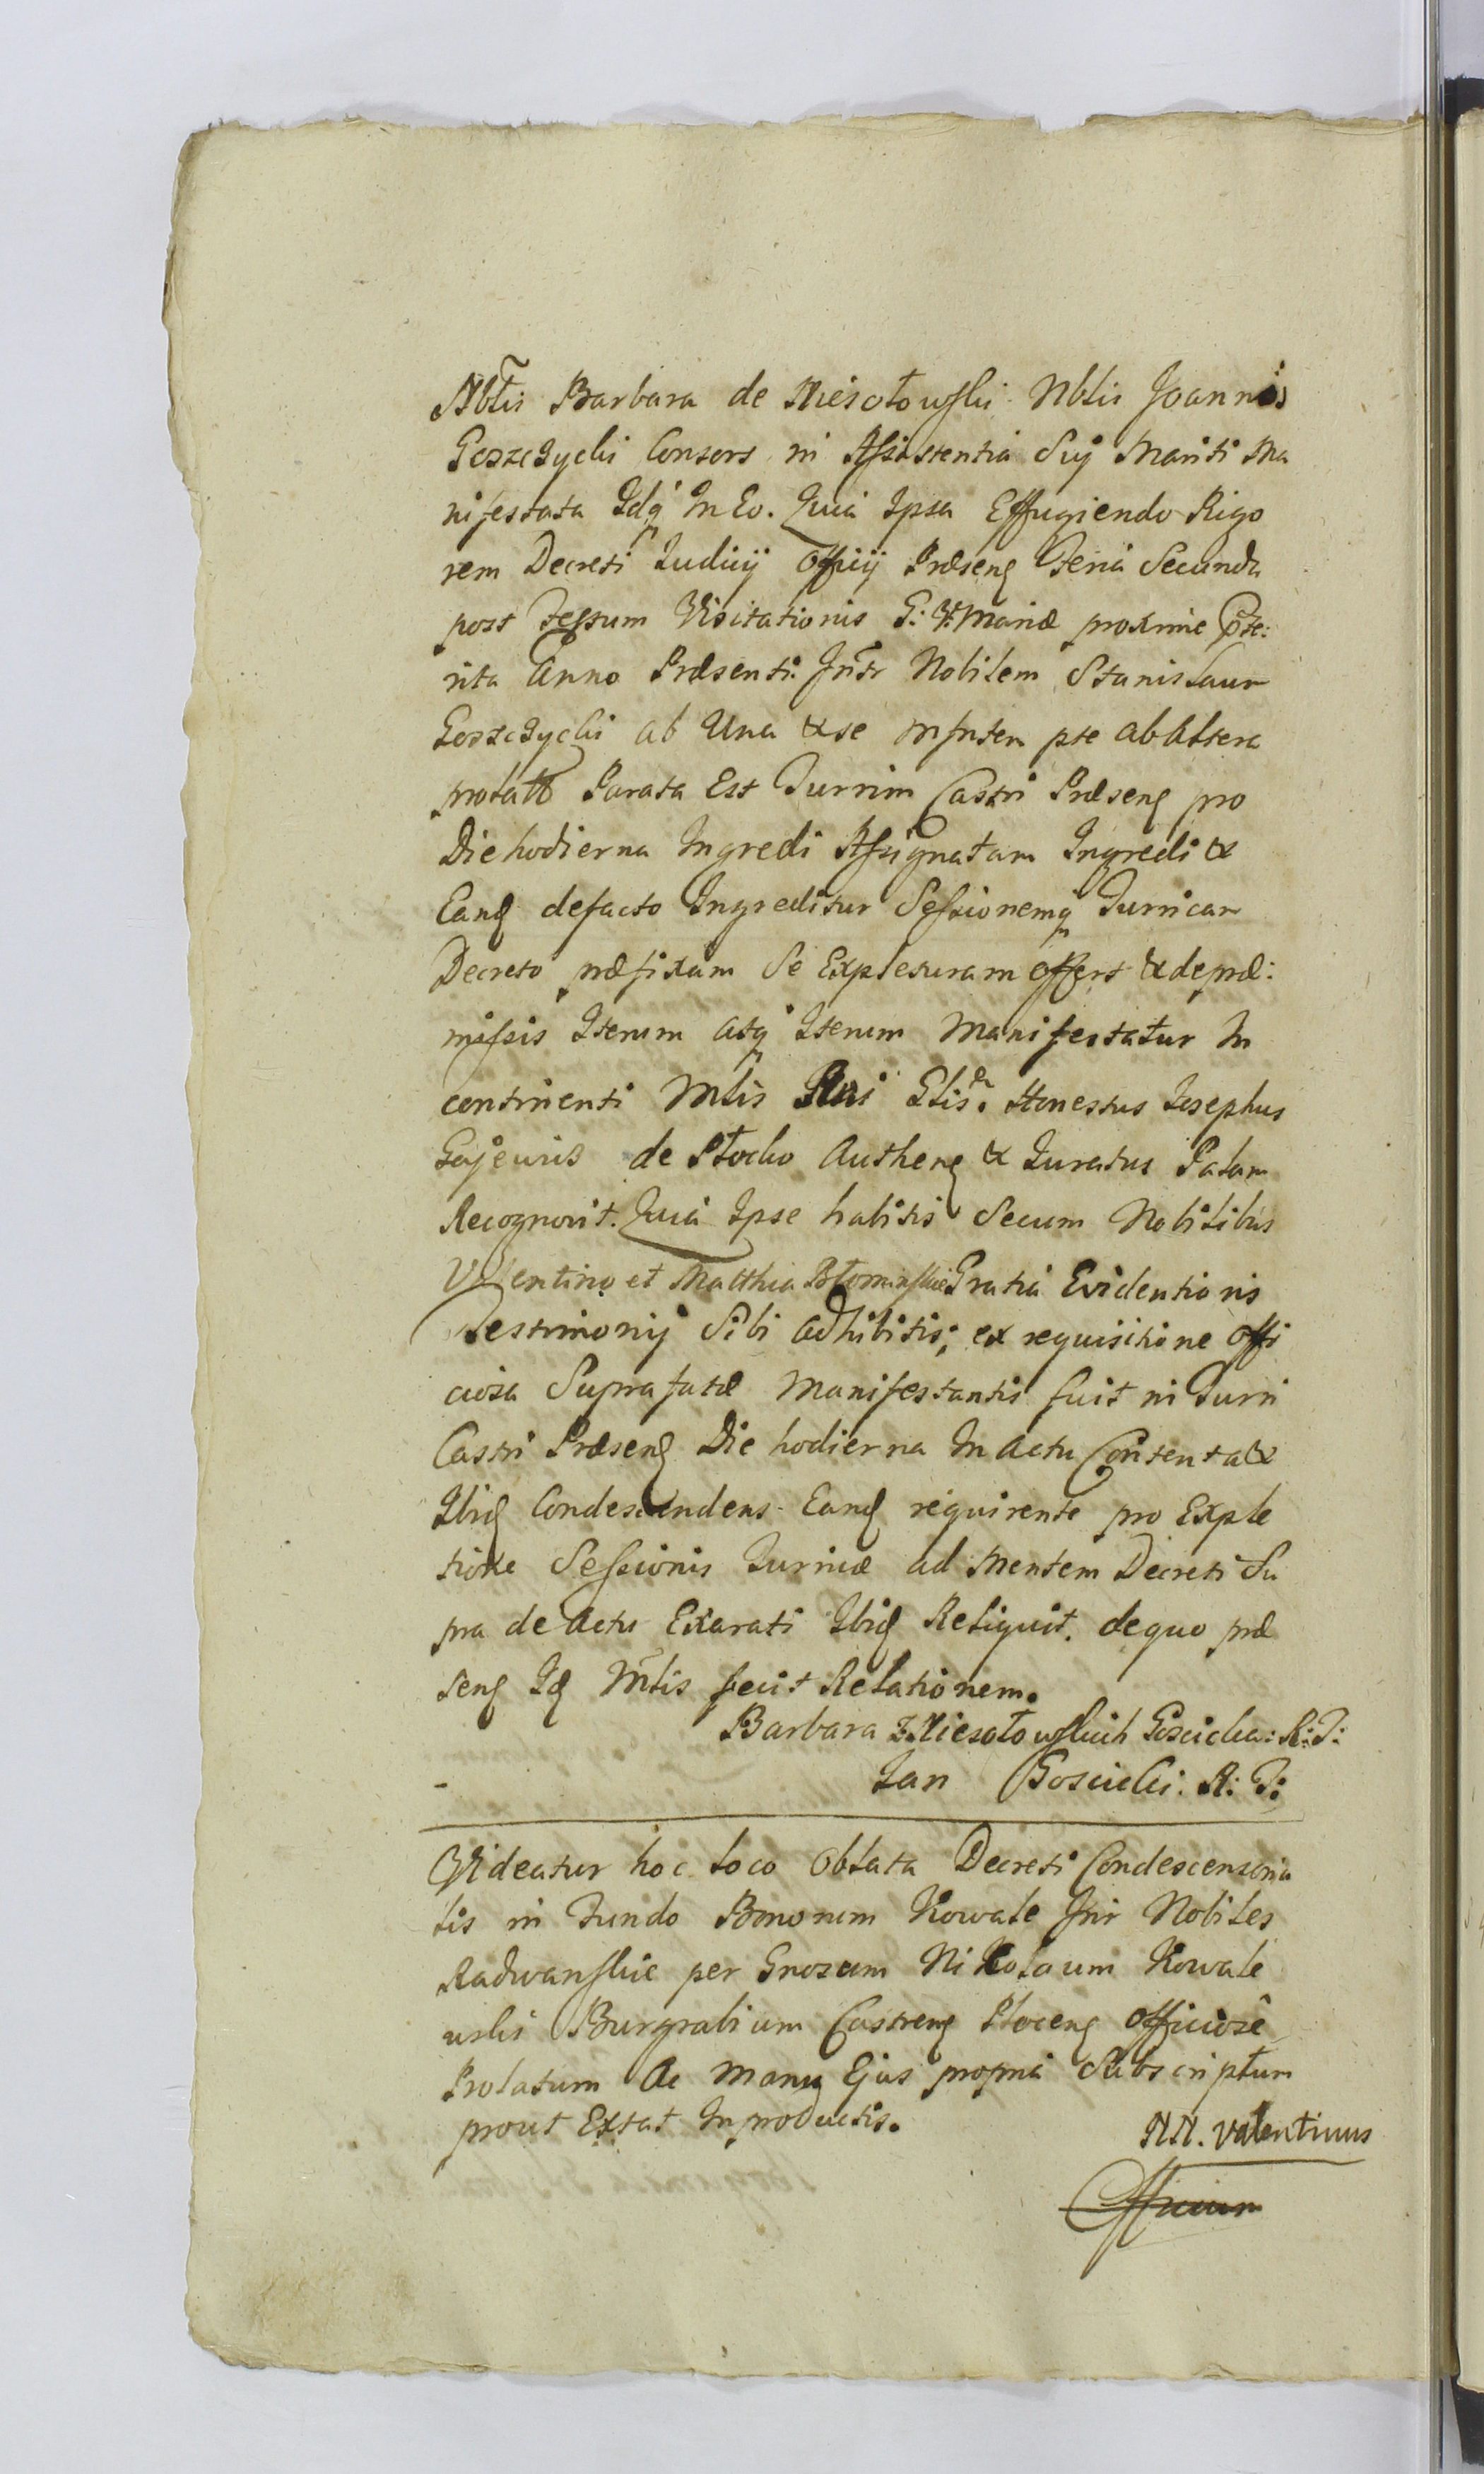 Nbtis Barbara de Niesołowski Nbtis Joannis
Goszczycki Consors in Assistentia Suj Mariti Ma
nifestata Idq In Eo. Quia Ipsa Effugiendo Rigo
rem Decreti Judicij Officij Præsenꝭ Feria Secunda
post Festum Visitationis G: V: Mariæ proxime pte:
rita Anno Præsenti Intr Nobilem Stanislaum
Goszczycki ab Una & se Mfntem pte ab Altera
prolatto Parata Est Turrim Castri Præsenꝭ pro
Die hodierna Ingredi Assignatam Ingredi &
Eandꝭ defacto Ingreditur Sessionemq Turricam
Decreto præfixam Se Expleturam offert & de præ:
missis Iterum atq Iterum Manifestatur In
continenti Mtis Rni Glis. Honestus Josephus
de Płocko Authenꝭ & Juratus Palam
Recognovit. Quia Ipse habitis Secum Nobilibus
Valentino et Matthia Błominskie Gratia Evidentioris
Testimonij Sibi adhibitis; ex requisitione offi
ciosa Suprafatæ Manifestantis fuit in Turri
Castri Præsenꝭ Die hodierna In Actu Contenta &
Ibidꝭ Condescendens Eandꝭ requirente pro Exple
tione Sessionis Turricæ ad Mentem Decreti Su
pra de Actu Exarati Ibidꝭ Reliquit. de quo præ
senꝭ Idꝭ Mtis fecit Relationem.
Barbara z Niesołowskich Goscicka: R: T:
Jan Goscicki. R: T:
Videatur hoc loco Oblata Decreti Condescensoria
lis in Fundo Bonorum Kowale Intr Nobiles
Radwanskie per Gnosum Nikolaum Kowale
wski Burgrabium Castrenꝭ Plocenꝭ Officiose
Prolatum Ac Manu Ejus propria Subscriptum
prout Extat In productis.
NN. Valentinus
Officium